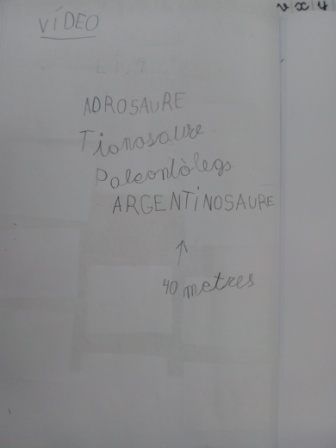 v x y
VÍDEO
ADROSAURE
Tionosaure
Paleontòlegs
ARGENTINOSAURE
↑
40 metres